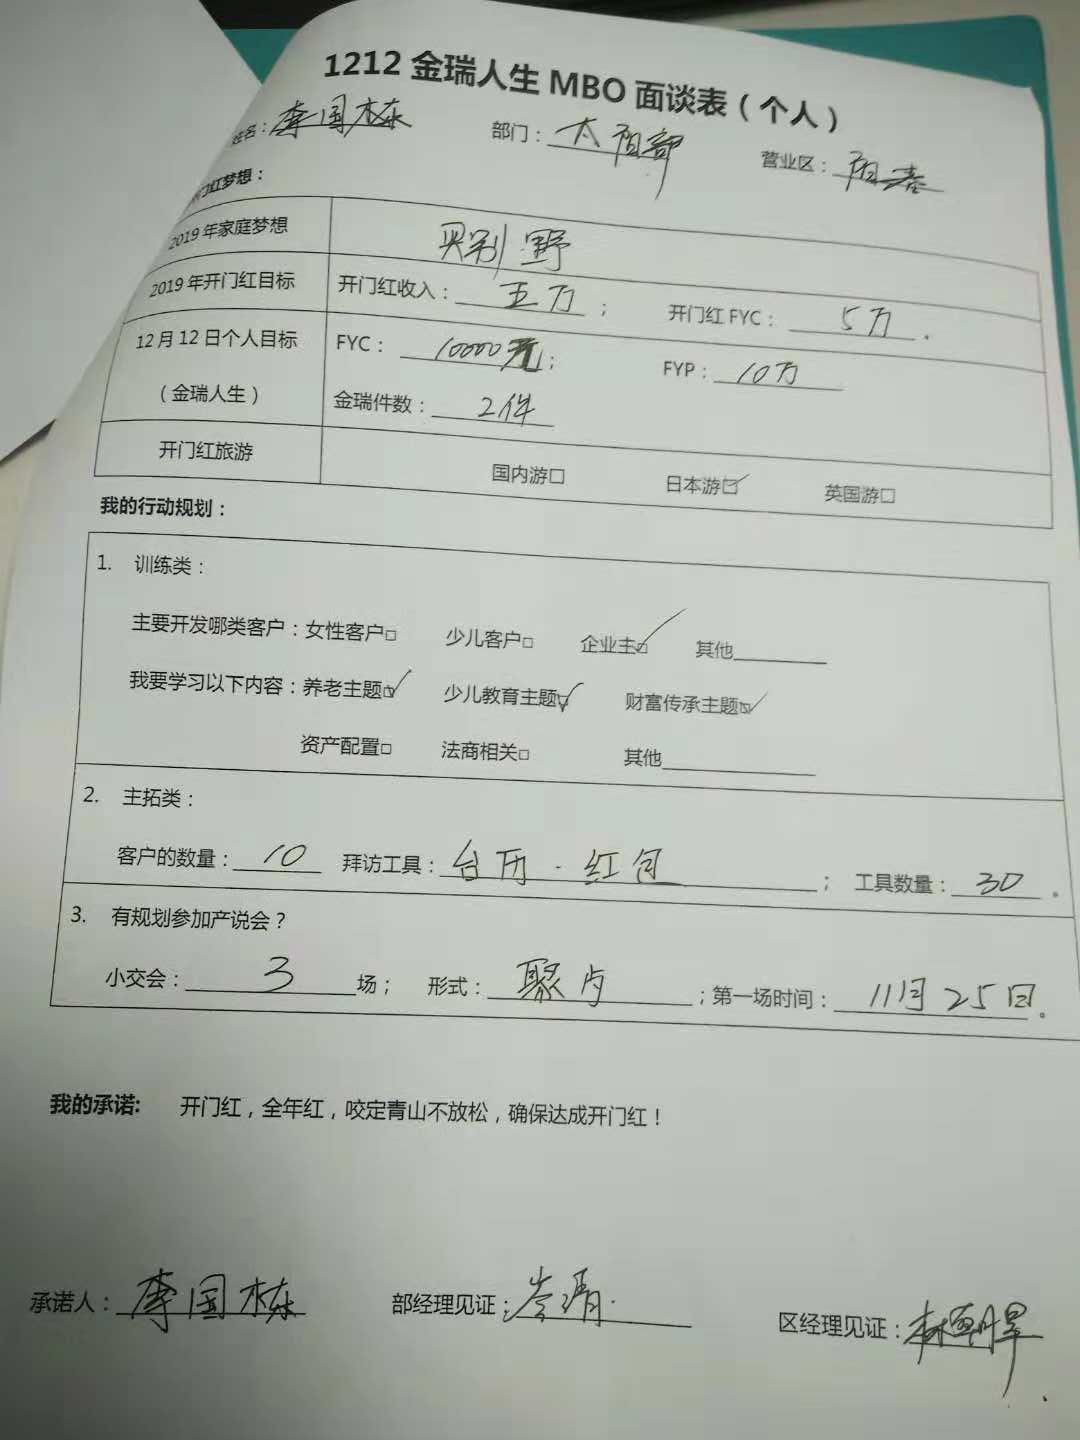 1212 金瑞人生 MBO 面谈表（个人）
姓名：李国栋 部门：太阳部 营业区：阳春
门红梦想：
2019 年家庭梦想 买别野
2019 年开门红目标 开门红收入：五万； 开门红 FYC：5万。
12 月 12 日个人目标 FYC：10000元； FYP：10万
（金瑞人生） 金瑞件数：2件
开门红旅游 国内游□ 日本游☑ 英国游□
我的行动规划：
1. 训练类：
主要开发哪类客户：女性客户□ 少儿客户□ 企业主☑ 其他
我要学习以下内容：养老主题☑ 少儿教育主题☑ 财富传承主题☑
资产配置□ 法商相关□ 其他
2. 主拓类：
客户的数量：10 拜访工具：台历·红包； 工具数量：30。
3. 有规划参加产说会？
小交会：3场； 形式：聚；第一场时间：11月25日。
我的承诺: 开门红，全年红，咬定青山不放松，确保达成开门红！
承诺人：李国栋 部经理见证：岑清 区经理见证：